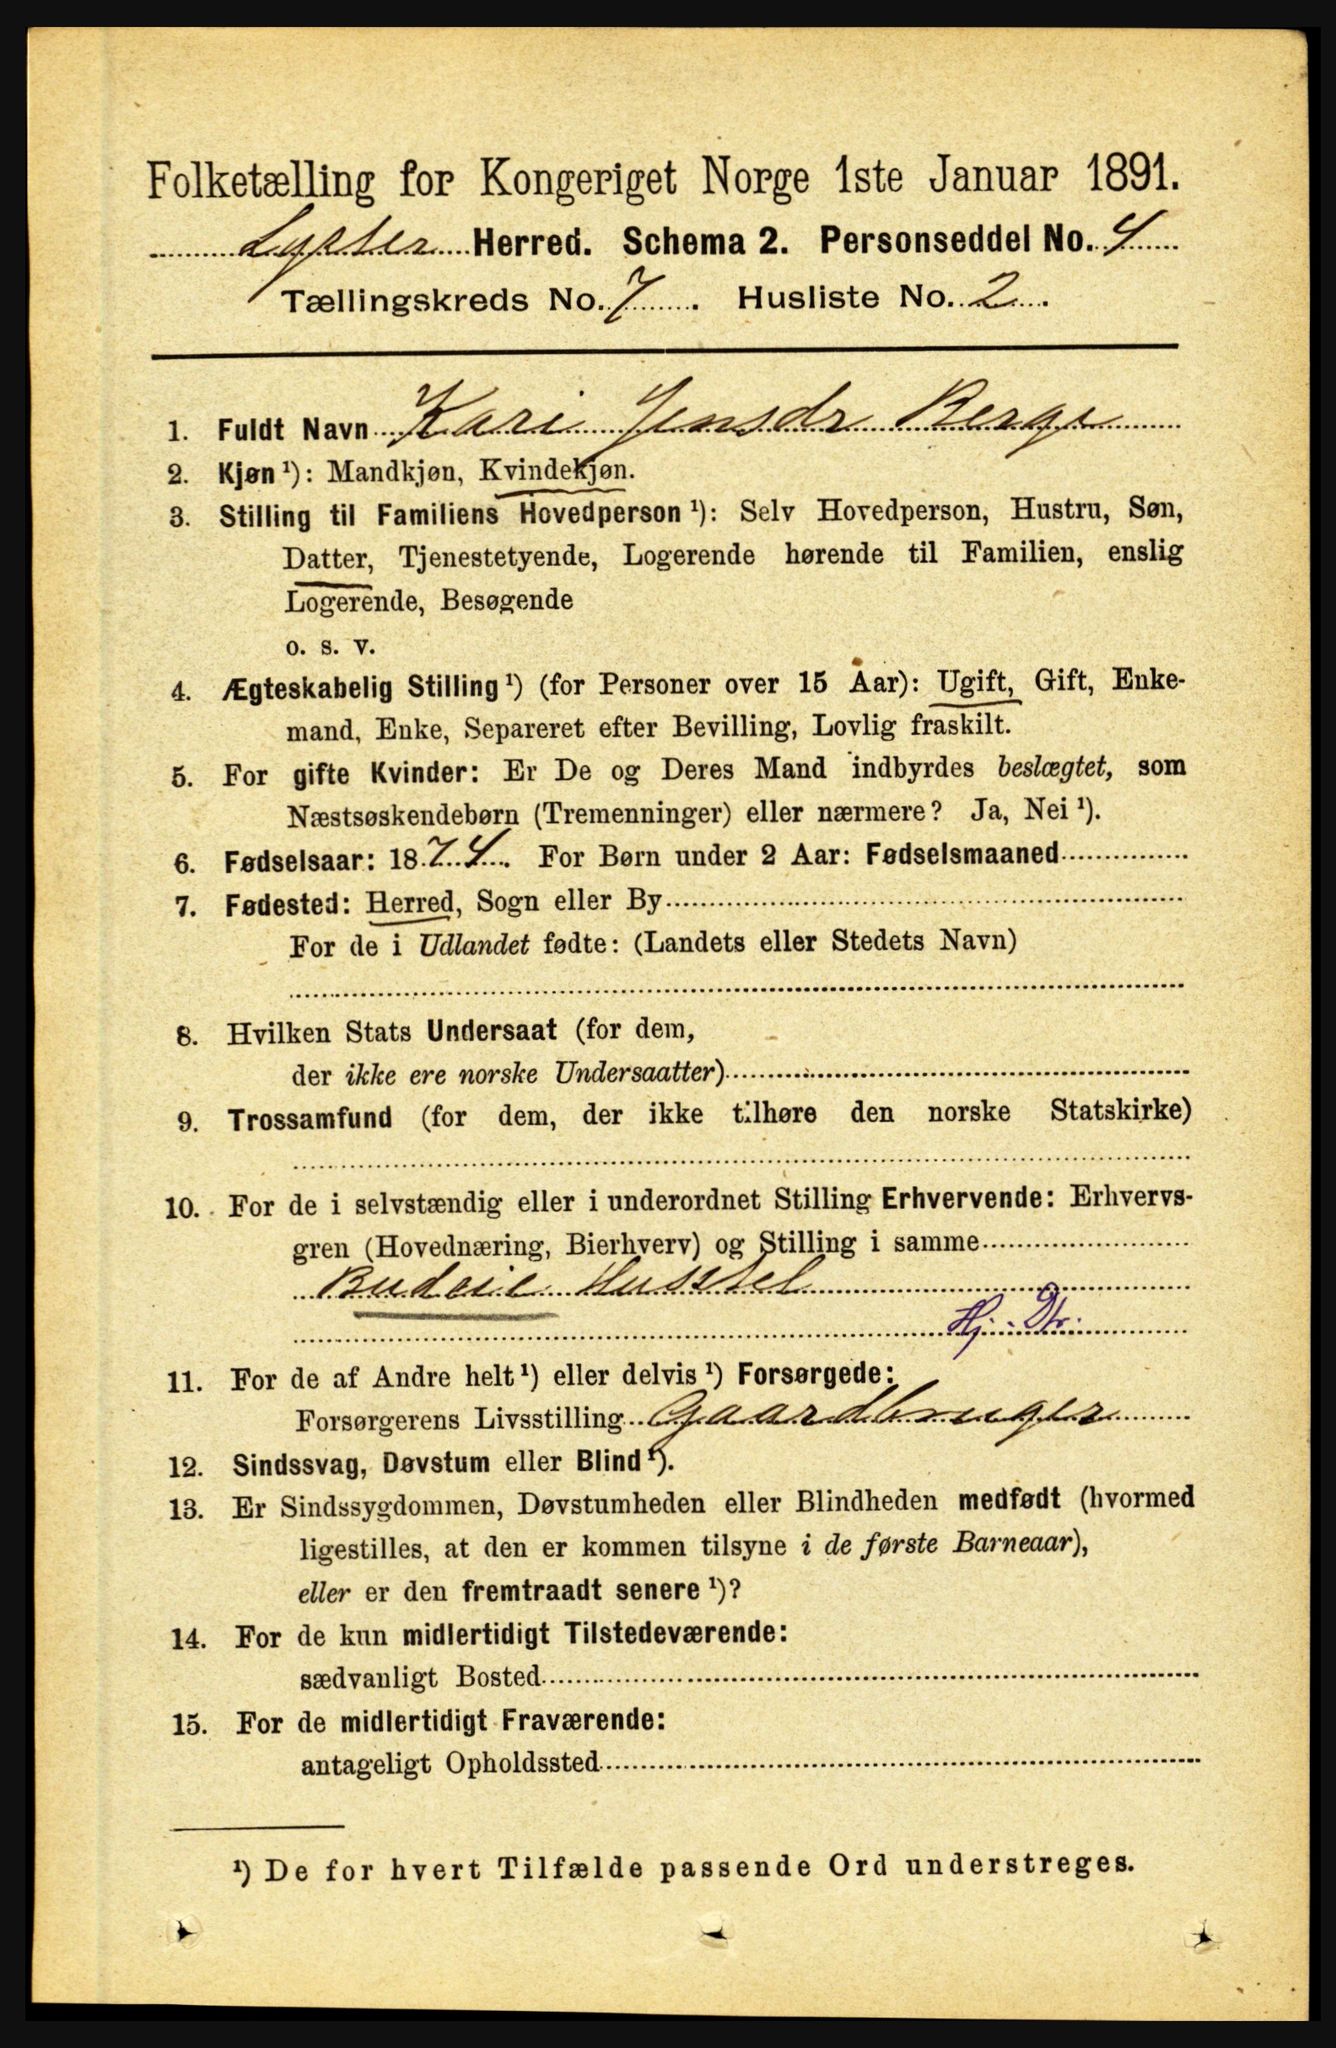 Folketælling for Kongeriget Norge 1ste Januar 1891.
Lyster Herred. Schema 2. Personseddel No. 4
Tællingskreds No. 7. Husliste No. 2.
1. Fuldt Navn Kari Jensdr Berge
2. Kjøn¹): Mandkjøn, Kvindekjøn.
3. Stilling til Familiens Hovedperson¹): Selv Hovedperson, Hustru, Søn,
Datter, Tjenestetyende, Logerende hørende til Familien, enslig
Logerende, Besøgende
o. s. v.
4. Ægteskabelig Stilling¹) (for Personer over 15 Aar): Ugift, Gift, Enke-
mand, Enke, Separeret efter Bevilling, Lovlig fraskilt.
5. For gifte Kvinder: Er De og Deres Mand indbyrdes beslægtet, som
Næstsøskendebørn (Tremenninger) eller nærmere? Ja, Nei¹).
6. Fødselsaar: 1874. For Børn under 2 Aar: Fødselsmaaned
7. Fødested: Herred, Sogn eller By
For de i Udlandet fødte: (Landets eller Stedets Navn)
8. Hvilken Stats Undersaat (for dem,
der ikke ere norske Undersaatter)
9. Trossamfund (for dem, der ikke tilhøre den norske Statskirke)
10. For de i selvstændig eller i underordnet Stilling Erhvervende: Erhvervs-
gren (Hovednæring, Bierhverv) og Stilling i samme
Budeie Husstel
Hj. Dtr.
11. For de af Andre helt¹) eller delvis¹) Forsørgede:
Forsørgerens Livsstilling Gaardbruger
12. Sindssvag, Døvstum eller Blind¹).
13. Er Sindssygdommen, Døvstumheden eller Blindheden medfødt (hvormed
ligestilles, at den er kommen tilsyne i de første Barneaar),
eller er den fremtraadt senere¹)?
14. For de kun midlertidigt Tilstedeværende:
sædvanligt Bosted
15. For de midlertidigt Fraværende:
antageligt Opholdssted
¹) De for hvert Tilfælde passende Ord understreges.